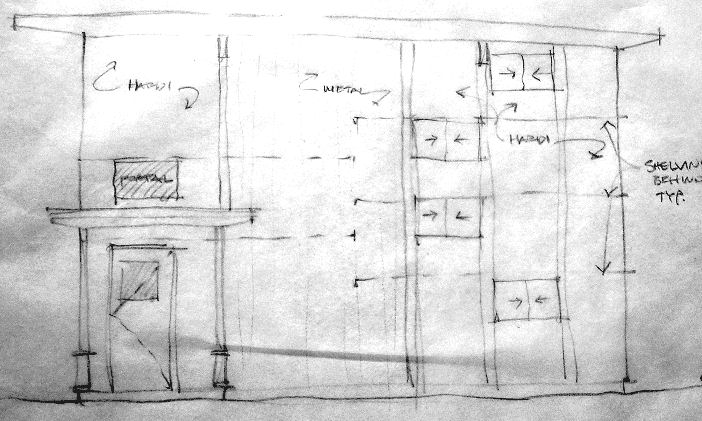 HARDI
METAL
HARDI
SHELVING
BEHIND
TYP.